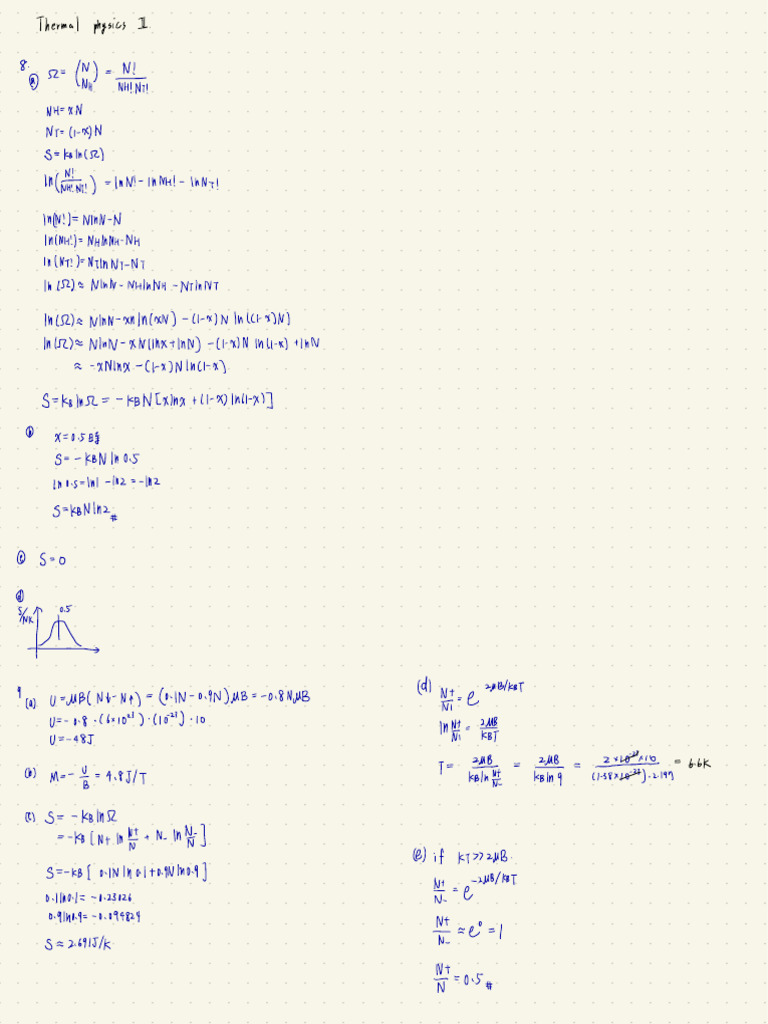 Thermal physics II
8.
(a) Ω = (N NH) = N! / NH! NT!
NH = xN
NT = (1-x)N
S = kB ln(Ω)
ln(N! / NH! NT!) = lnN! - lnNH! - lnNT!
ln(N!) = NlnN - N
ln(NH!) = NHlnNH - NH
ln(NT!) = NTlnNT - NT
ln(Ω) ≈ NlnN - NHlnNH - NTlnNT
ln(Ω) ≈ NlnN - xn ln(xN) - (1-x)N ln((1-x)N)
ln(Ω) ≈ NlnN - xN(lnx + lnN) - (1-x)N ln(1-x) + lnN
≈ -xNlnx - (1-x)Nln(1-x)
S = kB lnΩ = -kBN[xlnx + (1-x)ln(1-x)]
(b) x = 0.5 時
S = -kBN ln 0.5
ln 0.5 = ln1 - ln2 = -ln2
S = kBN ln2 #
(c) S = 0
(d)
S/NK
0.5
9
(a) U = μB(N↓ - N↑) = (0.1N - 0.9N)μB = -0.8NμB
U = -0.8 · (6×10^23) · (10^-23) · 10
U = -48J
(b) M = - U/B = 4.8J/T
(c) S = -kB lnΩ
= -kB [N+ ln N+/N + N- ln N-/N]
S = -kB [0.1N ln 0.1 + 0.9N ln 0.9]
0.1ln0.1 = -0.23026
0.9ln0.9 = -0.094824
S ≈ 2.691J/K
(d) N+/N- = e^2μB/kBT
ln N+/N- = 2μB/kBT
T = 2μB / kB ln N+/N- = 2μB / kB ln 9 = 2×10^-23×10 / (1.38×10^-23)·2.197 = 6.6K
(e) if KT >> 2μB
N+/N- = e^-2μB/kBT
N+/N- ≈ e^0 = 1
N+/N = 0.5 #